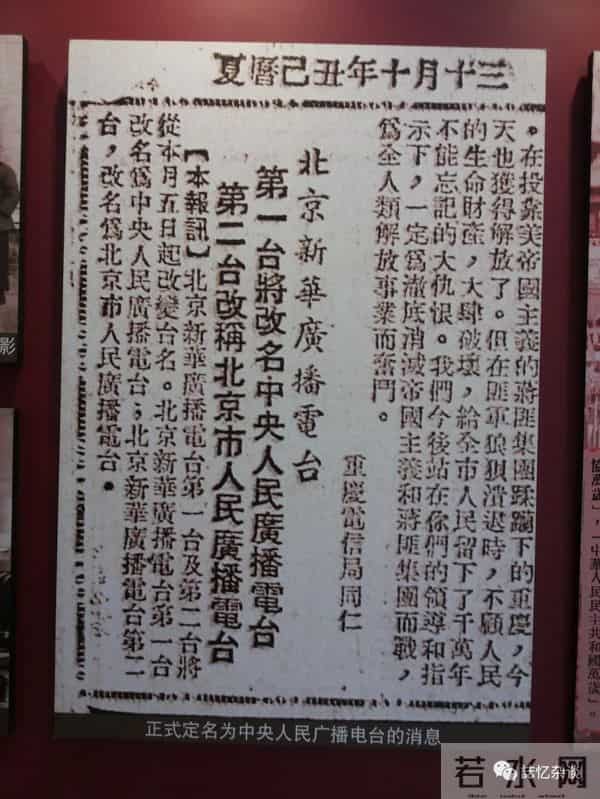 夏曆己丑年十月十三
。在投靠美帝國主義的蔣匪集團蹂躪下的重慶，今
天也獲得解放了。但在匪軍狼狽潰退時，不顧人民
的生命財產，大肆破壞，給全市人民留下了千萬年
不能忘記的大仇恨。我們今後站在你們的領導和指
示下，一定爲澈底消滅帝國主義和蔣匪集團而戰，
爲全人類解放事業而奮鬥。
重慶電信局同仁
北京新華廣播電台
第一台將改名中央人民廣播電台
第二台改稱北京市人民廣播電台
【本報訊】北京新華廣播電台第一台及第二台將
從本月五日起改變台名。北京新華廣播電台第一台
改名爲中央人民廣播電台；北京新華廣播電台第二
台，改名爲北京市人民廣播電台。
正式定名为中央人民广播电台的消息
影
協萬歲」，「中華人民民主共和國萬歲」。
话忆杂谈
若水网